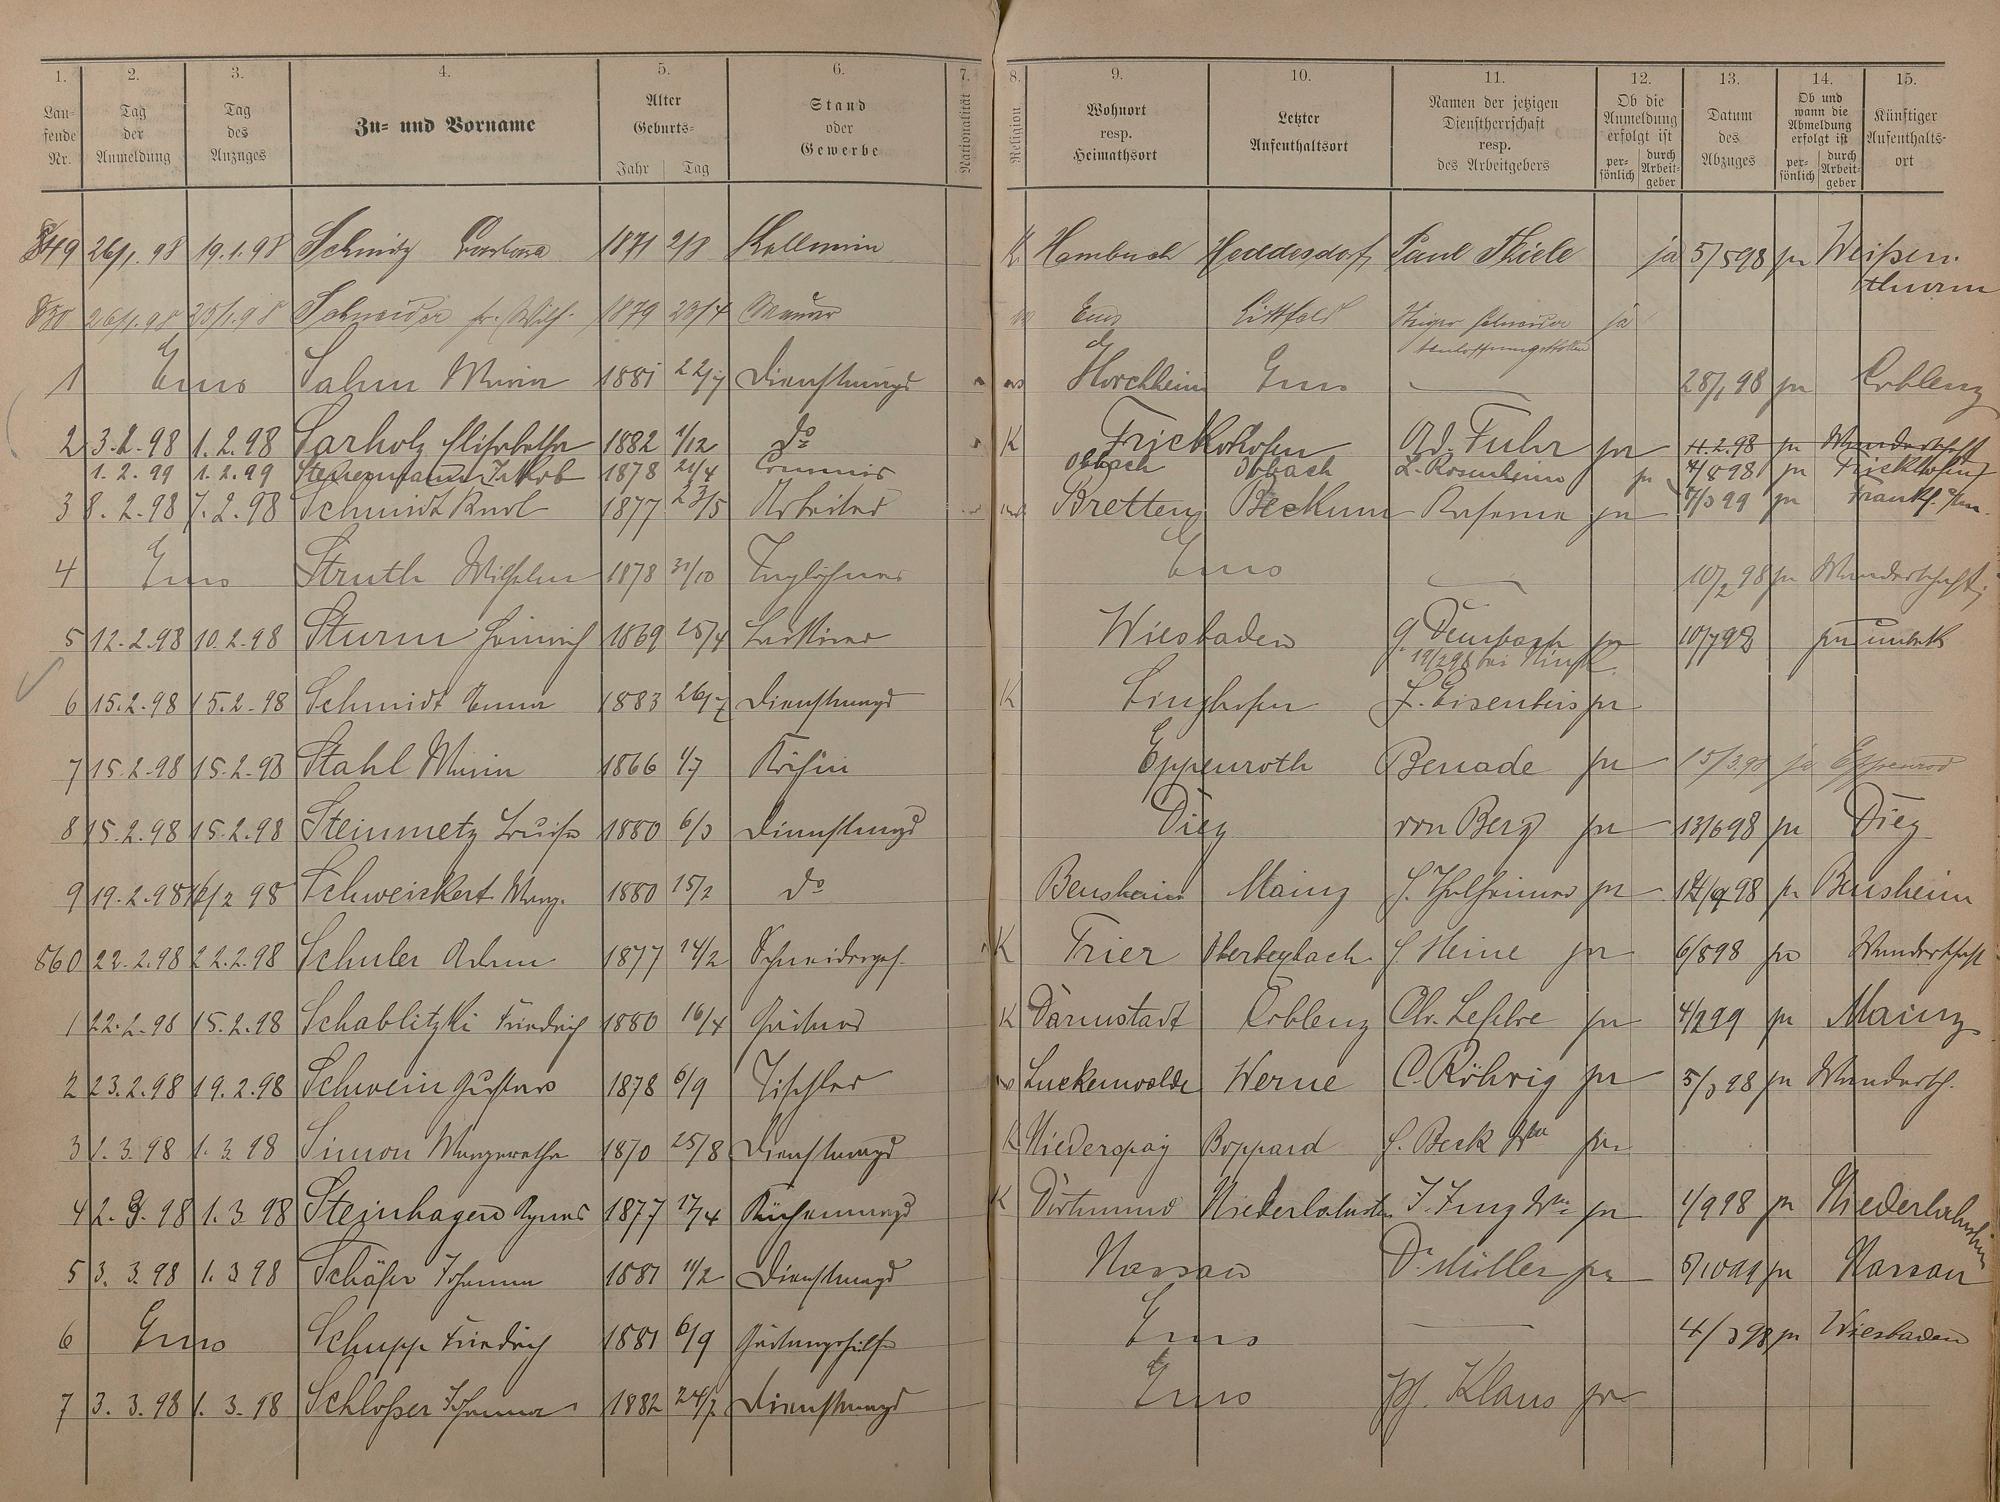 1. 2. 3. 4. 5. 6. 7. 8. 9. 10. 11. 12. 13. 14. 15.
Lau-
fende
Nr.
Tag
der
Anmeldung
Tag
des
Anzuges
Zu- und Vorname
Alter
Geburts-
Jahr Tag
Stand
oder
Gewerbe
Nationalität
Religion
Wohnort
resp.
Heimathsort
Letzter
Aufenthaltsort
Namen der jetzigen
Dienstherrschaft
resp.
des Arbeitgebers
Ob die
Anmeldung
erfolgt ist
per-
sönlich
durch
Arbeit-
geber
Datum
des
Abzuges
Ob und
wann die
Abmeldung
erfolgt ist
per-
sönlich
durch
Arbeit-
geber
Künftiger
Aufenthalts-
ort
849 26/1. 98 19.1.98 Schmitz Barbara 1871 2/8 Kellnerin K. Hambuch Heddesdorf Paul Thiele ja 5/5 98 ja Weißen-
thurm
850 26/1. 98 25/1. 98 Schneider Fr. Wilh. 1879 23/4 Ems Littfeld Schneider ja
1 Ems Sahm Maria 1881 22/7 Dienstmagd Horchheim Ems — 28/1 98 ja Coblenz
2 3.2.98 1.2.98 Sarholz Elisabetha 1882 1/12 do K Frickhofen Ad. Fuhr ja 11.2.98 ja Wanderschaft
1.2.99 1.2.99 Jakob 1878 21/4 Commis Obbach Obbach L. Rosenheim ja 4/8 98 ja Frickhofen
3 8.2.98 7.2.98 Schmidt Karl 1877 23/5 Arbeiter Bretten Beckum ja 7/3 99 ja Frankf. a/M.
4 Ems Struth Wilhelm 1878 31/10 Taglöhner Ems — 10/2 98 ja Wanderschaft
5 12.2.98 10.2.98 Sturm Heinrich 1869 25/4 Lackierer Wiesbaden G. Dembach ja 10/7 98 ja unbek
19/2 98 bei
6 15.2.98 15.2.98 Schmidt Anna 1883 26/7 Dienstmagd K Singhofen J. Eisenbeis ja
7 15.2.98 15.2.98 Stahl Maria 1866 1/7 Köchin Eppenroth Benade ja 15/3.98 ja Eppenrod
8 15.2.98 15.2.98 Steinmetz Louise 1880 6/3 Dienstmagd Diez von Berg ja 13/6 98 ja Diez
9 19.2.98 16/2 98 Schweickert Marg. 1880 15/2 do Bensheim Mainz ja 98 ja Bensheim
860 22.2.98 22.2.98 Schuler Adam 1877 14/2 Schneiderges. K Trier H. Heine ja 6/8 98 ja Wanderschaft
1 22.2.98 15.2.98 Schablitzki Friedrich 1880 16/4 Gärtner K Darmstadt Coblenz Chr. Lefebre ja 4/2 99 ja Mainz
2 23.2.98 19.2.98 Schwein Gustav 1878 6/9 Tischler Luckenwalde Werne C. Röhrig ja 5/3 98 ja Wandersch.
3 1.3.98 1.3.98 Simon Margaretha 1870 25/8 Dienstmagd K Niederspay Boppard H. Beck Wwe ja
4 2.3.98 1.3.98 Steinhagen Agnes 1877 17/4 Küchenmagd K Dortmund Niederlahnstein J. Jung Wwe ja 1/9 98 ja Niederlahnstein
5 3.3.98 1.3.98 Schäfer Johanna 1881 11/2 Dienstmagd Nassau Dr. Müller ja ja Nassau
6 Ems Schupp Friedrich 1881 6/9 Gärtnergehilfe Ems — 4/3 98 ja Wiesbaden
7 3.3.98 1.3.98 Schloßer Johanna 1882 24/7 Dienstmagd Ems Klaus ja